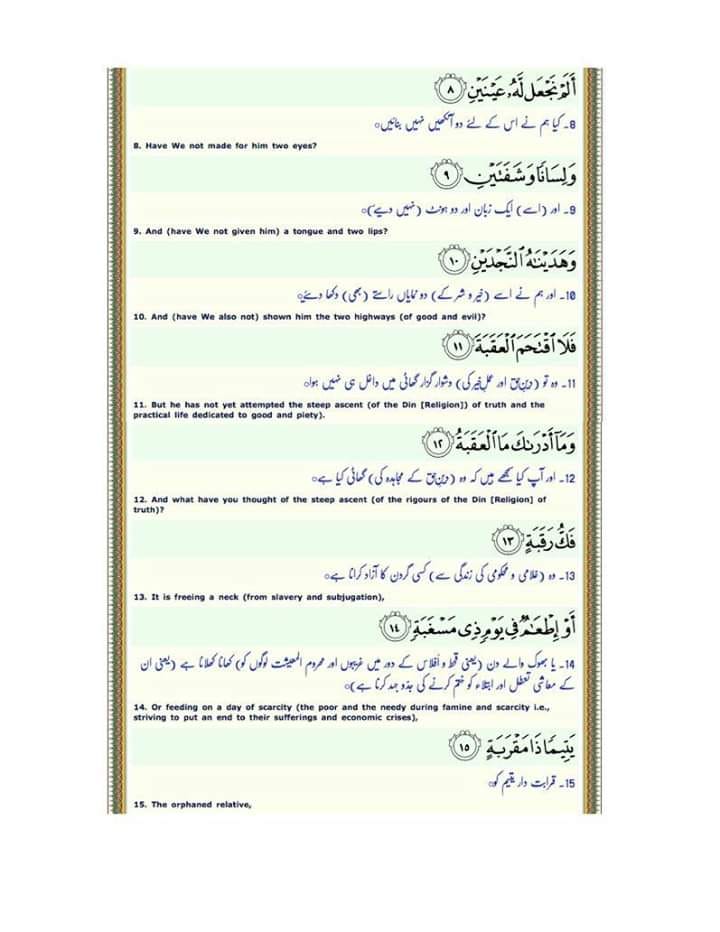 أَلَمْ نَجْعَل لَّهُۥ عَيْنَيْنِ ٨
8۔ کیا ہم نے اس کے لئے دو آنکھیں نہیں بنائیںo
8. Have We not made for him two eyes?
وَلِسَانًا وَشَفَتَيْنِ ٩
9۔ اور (اسے) ایک زبان اور دو ہونٹ (نہیں دیے)o
9. And (have We not given him) a tongue and two lips?
وَهَدَيْنَـٰهُ ٱلنَّجْدَيْنِ ١٠
10۔ اور ہم نے اسے (خیر و شر کے) دو نمایاں راستے (بھی) دکھا دئیےo
10. And (have We also not) shown him the two highways (of good and evil)?
فَلَا ٱقْتَحَمَ ٱلْعَقَبَةَ ١١
11۔ وہ تو (دینِ حق اور عملِ خیر کی) دشوار گزار گھاٹی میں داخل ہی نہیں ہواo
11. But he has not yet attempted the steep ascent (of the Din [Religion]) of truth and the
practical life dedicated to good and piety).
وَمَآ أَدْرَىٰكَ مَا ٱلْعَقَبَةُ ١٢
12۔ اور آپ کیا سمجھے ہیں کہ وہ (دینِ حق کے مجاہدہ کی) گھاٹی کیا ہےo
12. And what have you thought of the steep ascent (of the rigours of the Din [Religion] of
truth)?
فَكُّ رَقَبَةٍ ١٣
13۔ وہ (غلامی و محکومی کی زندگی سے) کسی گردن کا آزاد کرانا ہےo
13. It is freeing a neck (from slavery and subjugation),
أَوْ إِطْعَـٰمٌ فِى يَوْمٍ ذِى مَسْغَبَةٍ ١٤
14۔ یا بھوک والے دن (یعنی قحط و اَفلاس کے دور میں غریبوں اور محروم المعیشت لوگوں کو) کھانا کھلانا ہے (یعنی ان
کے معاشی تعطل اور ابتلاء کو ختم کرنے کی جدّو جہد کرنا ہے)o
14. Or feeding on a day of scarcity (the poor and the needy during famine and scarcity i.e.,
striving to put an end to their sufferings and economic crises),
يَتِيمًا ذَا مَقْرَبَةٍ ١٥
15۔ قرابت دار یتیم کوo
15. The orphaned relative,